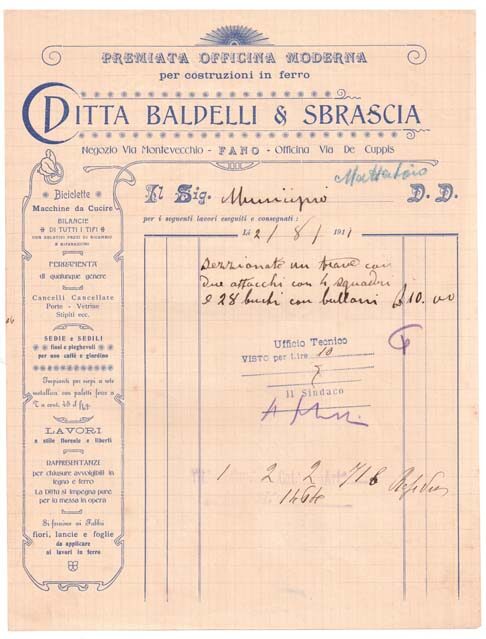 PREMIATA OFFICINA MODERNA
per costruzioni in ferro
DITTA BALDELLI & SBRASCIA
Negozio Via Montevecchio - FANO - Officina Via De Cuppis
Mattatoio
Il Sig. Municipio D. D.
per i seguenti lavori eseguiti e consegnati:
Lì 2 / 8 / 1911
Biciclette
Macchine da Cucire
BILANCIE
DI TUTTI I TIPI
CON RELATIVI PEZZI DI RICAMBIO
E RIPARAZIONI
FERRAMENTA
di qualunque genere
Cancelli Cancellate
Porte - Vetrine
Stipiti ecc.
SEDIE e SEDILI
fissi e pieghevoli
per uso caffè e giardino
Impianti per siepi a rete
metallica con paletti ferro a
T a cent. 48 il
LAVORI
a stile floreale e liberti
RAPPRESENTANZE
per chiusure avvolgibili in
legno e ferro
La Ditta si impegna pure
per la messa in opera
Si fornisce ai Fabbri
fiori, lancie e foglie
da applicare
ai lavori in ferro
un trave con
due attacchi con 4 squadri
e 28 buchi con bulloni £ 10. 00
Ufficio Tecnico
VISTO per Lire 10
Il Sindaco
1 2 2 71
1464